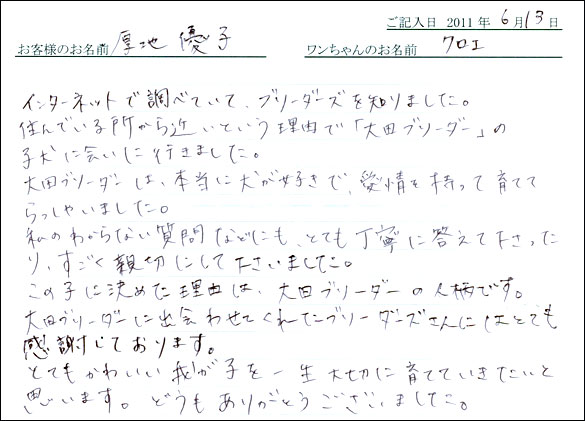 ご記入日 2011年 6月13日
お客様のお名前 厚地 優子 ワンちゃんのお名前 クロエ
インターネットで調べていて、ブリーダーズを知りました。
住んでいる所から近いという理由で「太田ブリーダー」の
子犬に会いに行きました。
太田ブリーダーは、本当に犬が好きで、愛情を持って育てて
らっしゃいました。
私のわからない質問などにも、とても丁寧に答えて下さった
り、すごく親切にして下さいました。
この子に決めた理由は、太田ブリーダーの人柄です。
太田ブリーダーに出会わせてくれたブリーダーズさんにはとても
感謝しております。
とてもかわいい我が子を一生大切に育てていきたいと
思います。どうもありがとうございました。